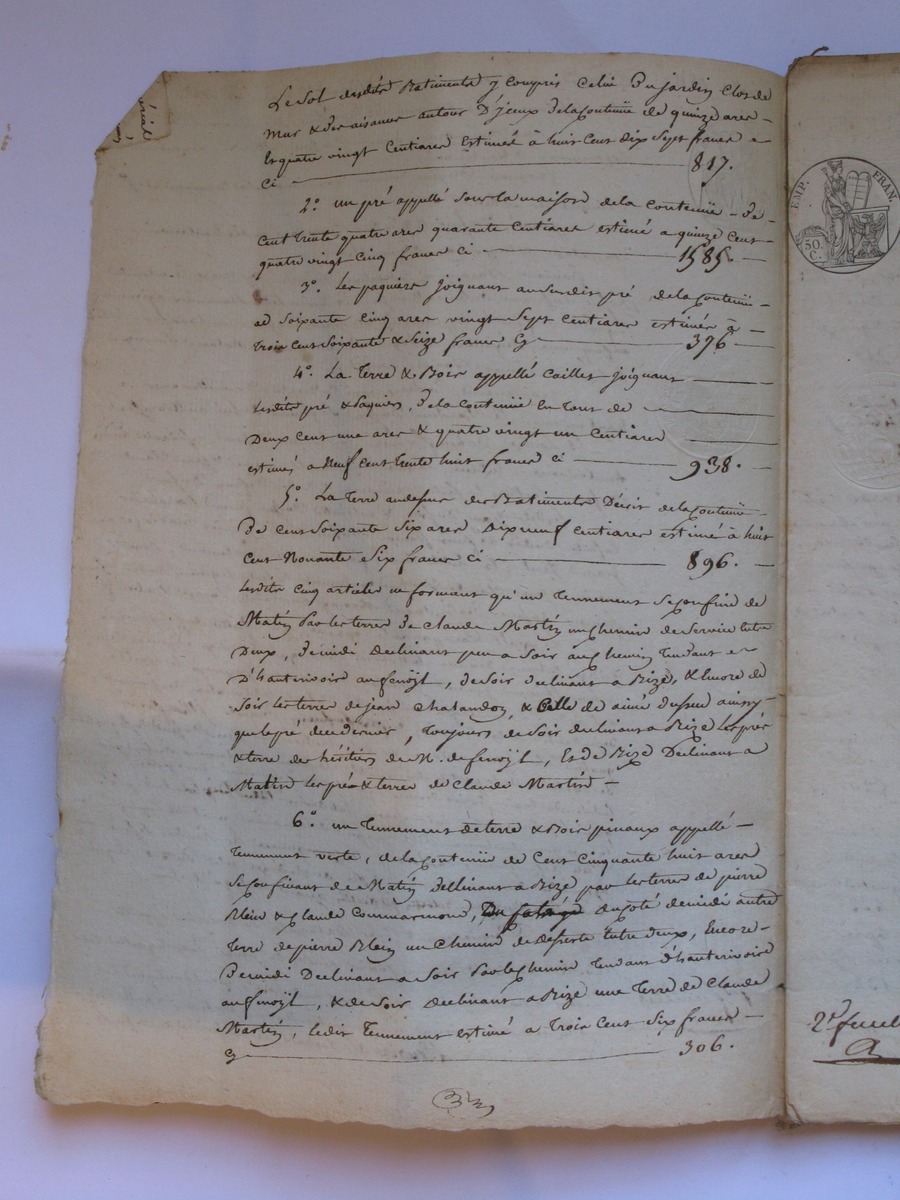 Le Sol desdits Batiments y compris Celui Du jardin Clos de
mur & des aisances autour D'iceux De la Contenüe de quinze ares
quatre vingt Centiares Estimés à huit Cent dix Sept francs
ci 817.
2.° un pré appellé Sous la maison de la Contenüe de
Cent trente quatre ares quarante Centiares estimé a quinze Cent
quatre vingt Cinq francs ci 1585.
3.° Les paquiers joignant au Susdit pré de la Contenüe
de Soixante Cinq ares vingt Sept Centiares estimés à
trois Cent Soixante & Seize francs Cy 376
4.° La terre & Bois appellé Caillet joignant
lesdits pré & paquiers, de la Contenüe En tout de
Deux Cent une ares & quatre vingt un Centiares
estimés a Neuf Cent trente huit francs ci 938.
5.° La terre au dessus des Batiments De la Contenüe
de Cent Soixante Six ares Dix neuf Centiares estimé à huit
Cent Nonante Six francs ci 896.
Lesdits Cinq articles ne forment qu'un tennement Se Confine de
Matin Par les terres de Claude Martin un Chemin de Service Entre
Deux, De midi declinant peu a Soir au Chemin tendant
D'hauterivoire au fenoÿl, de Soir declinant a Bize, & Encore de
Soir les terres de jean Chatandon & Celle de aimé dussud ainsy
que le pré de ce dernier, toujours de Soir declinant a Bize les prés
& terre des héritiers de M. de fenoÿl, Et de Bize Declinant a
Matin les prés & terres de Claude Martin
6.° un tennement de terre & Bois pinaux appellé
tennement verte, de la Contenüe de Cent Cinquante huit ares
Se Confinant de Matin declinant a Bize par les terres de pierre
Blein & Claude Commarmond, Du Coté de midi autre
terre de pierre Blein un Chemin de deserte Entre deux, Encore
De midi Declinant a Soir Par le Chemin tendant d'hauterivoire
au fenoÿl, & de Soir declinant a Bize une terre de Claude
Martin, ledit tennement estimé a trois Cent Six francs
Cy 306.
EMP. FRAN.
50. C.
2.e